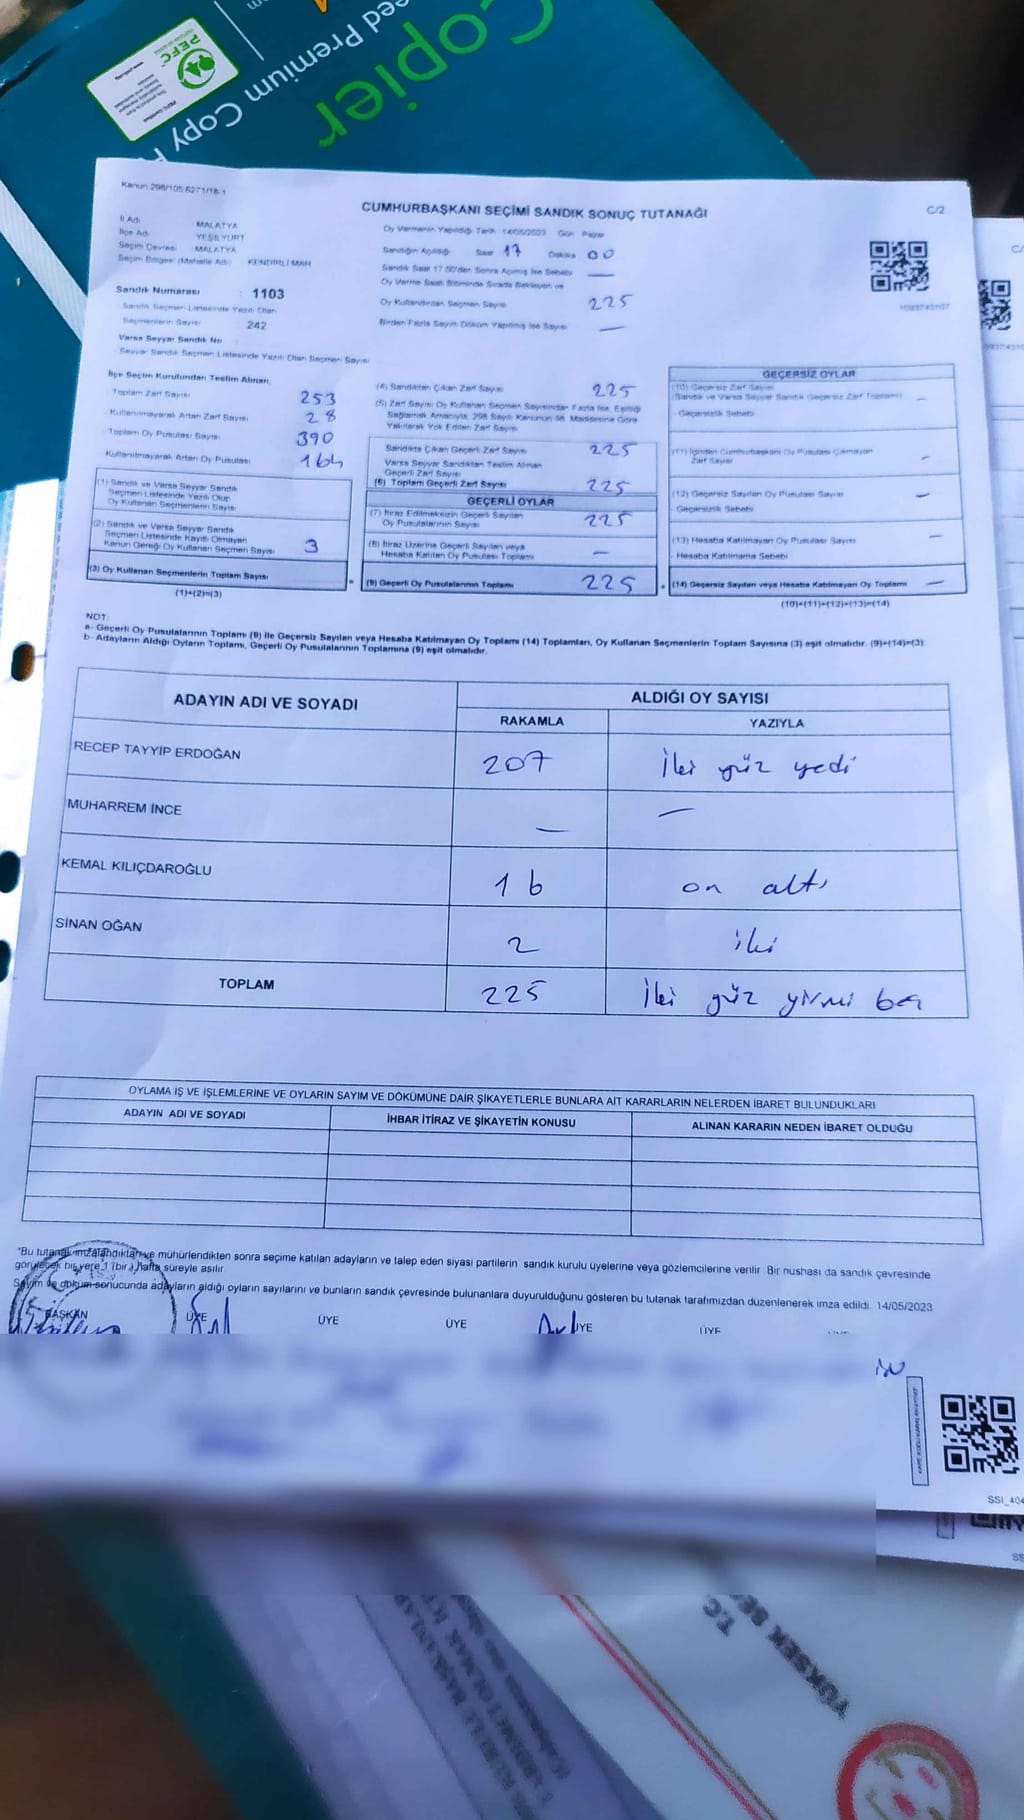 Copier
eed Premium Copy
PEFC
Kanun:298/105;6271/18-1
CUMHURBAŞKANI SEÇİMİ SANDIK SONUÇ TUTANAĞI
C/2
İl Adı MALATYA
İlçe Adı YEŞİLYURT
Seçim Çevresi MALATYA
Seçim Bölgesi (Mahalle Adı) KENDİRLİ MAH
Sandık Numarası : 1103
Sandık Seçmen Listesinde Yazılı Olan
Seçmenlerin Sayısı : 242
Varsa Seyyar Sandık No
Seyyar Sandık Seçmen Listesinde Yazılı Olan Seçmen Sayısı
Oy Vermenin Yapıldığı Tarih 14/05/2023 Gün Pazar
Sandığın Açıldığı Saat 17 Dakika 00
Sandık Saat 17.00'den Sonra Açılmış İse Sebebi —
Oy Verme Saati Bitiminde Sırada Bekleyen ve
Oy Kullandırılan Seçmen Sayısı 225
Birden Fazla Sayım Döküm Yapılmış İse Sayısı —
İlçe Seçim Kurulundan Teslim Alınan;
Toplam Zarf Sayısı 253
Kullanılmayarak Artan Zarf Sayısı 28
Toplam Oy Pusulası Sayısı 390
Kullanılmayarak Artan Oy Pusulası 164
(1) Sandık ve Varsa Seyyar Sandık
Seçmen Listesinde Yazılı Olup
Oy Kullanan Seçmenlerin Sayısı
(2) Sandık ve Varsa Seyyar Sandık
Seçmen Listesinde Kayıtlı Olmayan
Kanun Gereği Oy Kullanan Seçmen Sayısı 3
(3) Oy Kullanan Seçmenlerin Toplam Sayısı
(1)+(2)=(3)
(4) Sandıktan Çıkan Zarf Sayısı 225
(5) Zarf Sayısı Oy Kullanan Seçmen Sayısından Fazla İse, Eşitliği
Sağlamak Amacıyla, 298 Sayılı Kanunun 98. Maddesine Göre
Yakılarak Yok Edilen Zarf Sayısı
Sandıkta Çıkan Geçerli Zarf Sayısı 225
Varsa Seyyar Sandıktan Teslim Alınan
Geçerli Zarf Sayısı
(6) Toplam Geçerli Zarf Sayısı 225
GEÇERLİ OYLAR
(7) İtiraz Edilmeksizin Geçerli Sayılan
Oy Pusulalarının Sayısı 225
(8) İtiraz Üzerine Geçerli Sayılan veya
Hesaba Katılan Oy Pusulası Toplamı —
(9) Geçerli Oy Pusulalarının Toplamı 225
GEÇERSİZ OYLAR
(10) Geçersiz Zarf Sayısı
(Sandık ve Varsa Seyyar Sandık Geçersiz Zarf Toplamı) —
- Geçersizlik Sebebi
(11) İçinden Cumhurbaşkanı Oy Pusulası Çıkmayan
Zarf Sayısı —
(12) Geçersiz Sayılan Oy Pusulası Sayısı —
- Geçersizlik Sebebi
(13) Hesaba Katılmayan Oy Pusulası Sayısı —
- Hesaba Katılmama Sebebi
(14) Geçersiz Sayılan veya Hesaba Katılmayan Oy Toplamı —
(10)+(11)+(12)+(13)=(14)
NOT:
a- Geçerli Oy Pusulalarının Toplamı (9) ile Geçersiz Sayılan veya Hesaba Katılmayan Oy Toplamı (14) Toplamları, Oy Kullanan Seçmenlerin Toplam Sayısına (3) eşit olmalıdır. (9)+(14)=(3)
b- Adayların Aldığı Oyların Toplamı, Geçerli Oy Pusulalarının Toplamına (9) eşit olmalıdır.
ADAYIN ADI VE SOYADI
ALDIĞI OY SAYISI
RAKAMLA YAZIYLA
RECEP TAYYİP ERDOĞAN 207 iki yüz yedi
MUHARREM İNCE — —
KEMAL KILIÇDAROĞLU 16 on altı
SİNAN OĞAN 2 iki
TOPLAM 225 iki yüz yirmi beş
OYLAMA İŞ VE İŞLEMLERİNE VE OYLARIN SAYIM VE DÖKÜMÜNE DAİR ŞİKAYETLERLE BUNLARA AİT KARARLARIN NELERDEN İBARET BULUNDUKLARI
ADAYIN ADI VE SOYADI İHBAR İTİRAZ VE ŞİKAYETİN KONUSU ALINAN KARARIN NEDEN İBARET OLDUĞU
"Bu tutanak imzalandıktan ve mühürlendikten sonra seçime katılan adayların ve talep eden siyasi partilerin sandık kurulu üyelerine veya gözlemcilerine verilir. Bir nushası da sandık çevresinde
görülecek bir yere 1 (bir) hafta süreyle asılır
Sayım ve döküm sonucunda adayların aldığı oyların sayılarını ve bunların sandık çevresinde bulunanlara duyurulduğunu gösteren bu tutanak tarafımızdan düzenlenerek imza edildi. 14/05/2023
BAŞKAN ÜYE ÜYE ÜYE ÜYE ÜYE
SSI_404
T.C.
YÜKSEK SE